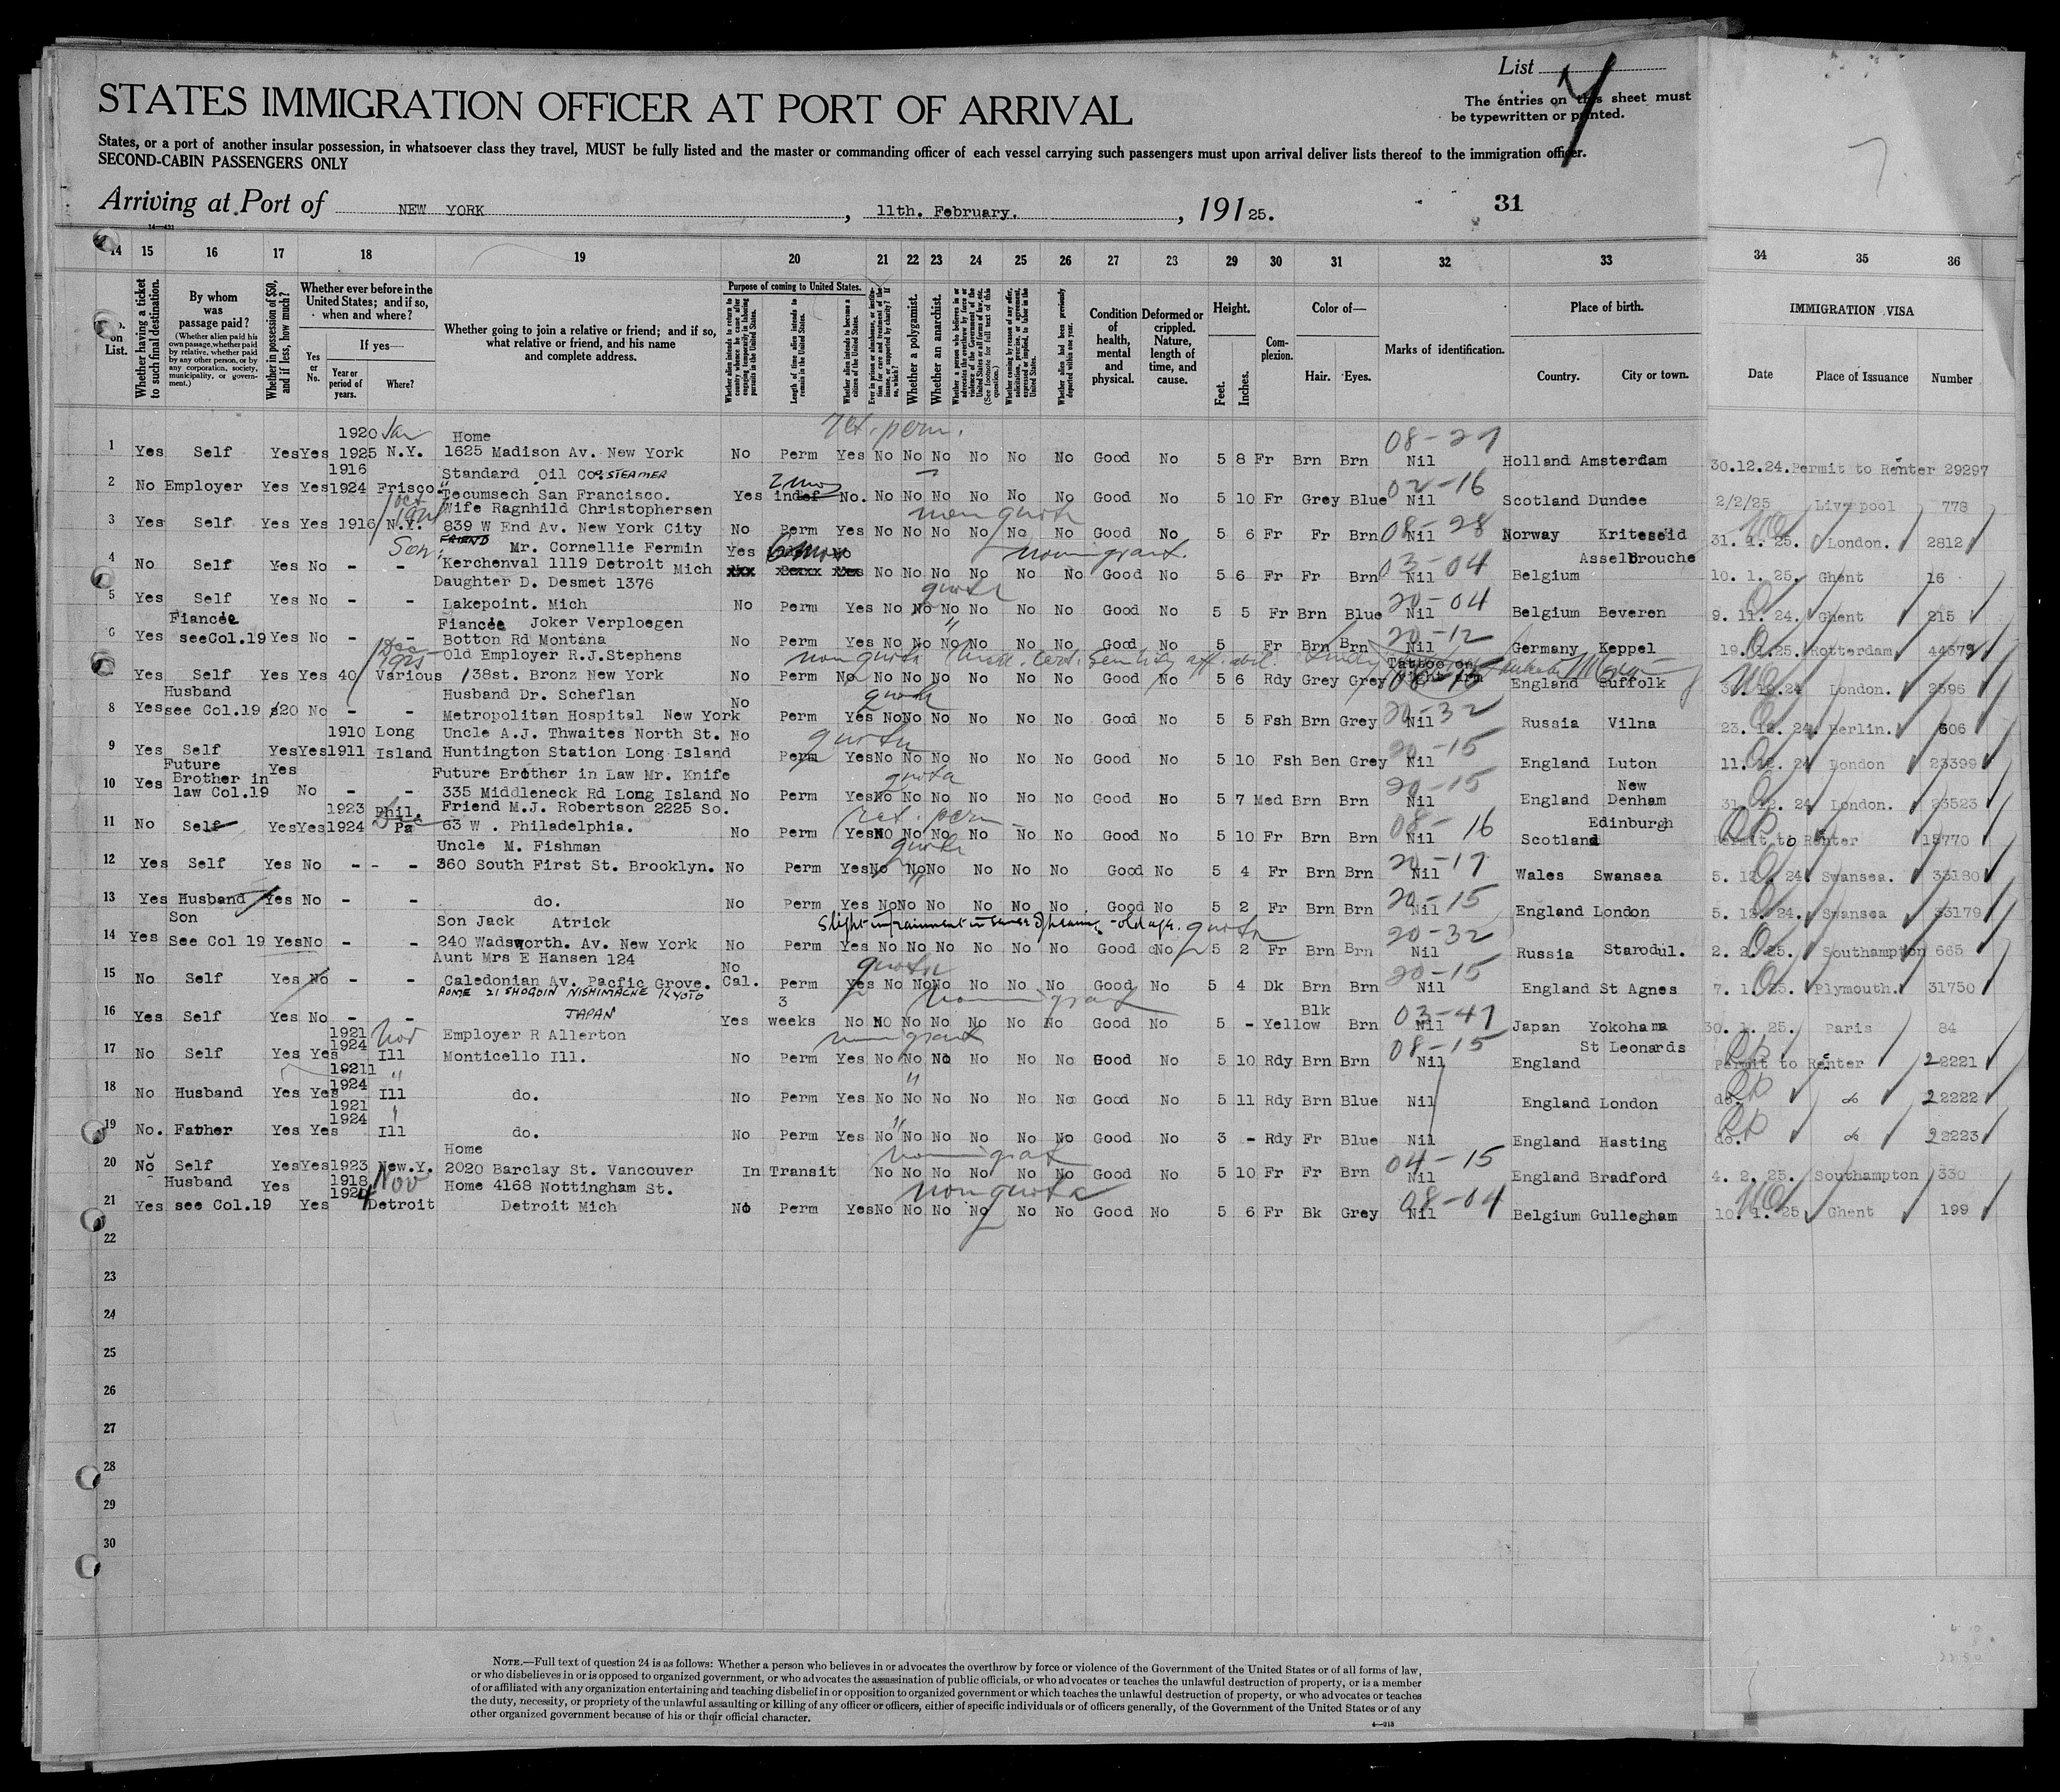 List
The entries on this sheet must
be typewritten or printed.
STATES IMMIGRATION OFFICER AT PORT OF ARRIVAL
States, or a port of another insular possession, in whatsoever class they travel, MUST be fully listed and the master or commanding officer of each vessel carrying such passengers must upon arrival deliver lists thereof to the immigration officer.
SECOND-CABIN PASSENGERS ONLY
Arriving at Port of NEW YORK, 11th. February. , 191 25. 31
14 15 16 17 18 19 20 21 22 23 24 25 26 27 23 29 30 31 32 33 34 35 36
No. on List.
Whether having a ticket to such final destination.
By whom was passage paid?
(Whether alien paid his own passage, whether paid by relative, whether paid by any other person, or by any corporation, society, municipality, or government.)
Whether in possession of $50, and if less, how much?
Whether ever before in the United States; and if so, when and where?
Yes or No.
If yes—
Year or period of years.
Where?
Whether going to join a relative or friend; and if so, what relative or friend, and his name and complete address.
Purpose of coming to United States.
Whether alien intends to return to country whence he came after engaging temporarily in laboring pursuits in the United States.
Length of time alien intends to remain in the United States.
Whether alien intends to become a citizen of the United States.
Whether a polygamist.
Whether an anarchist.
Whether alien had been previously deported within one year.
Condition of health, mental and physical.
Deformed or crippled. Nature, length of time, and cause.
Height.
Feet. Inches.
Complexion.
Color of—
Hair. Eyes.
Marks of identification.
Place of birth.
Country. City or town.
IMMIGRATION VISA
Date Place of Issuance Number
1920 Jan Home ret. perm. 08-27
1 Yes Self Yes Yes 1925 N.Y. 1625 Madison Av. New York No Perm Yes No No No No No No Good No 5 8 Fr Brn Brn Nil Holland Amsterdam 30.12.24. Permit to Renter 29297
1916 Standard Oil Co's STEAMER 2 mo 02-16
2 No Employer Yes Yes 1924 Frisco. Tecumsech San Francisco. Yes indef No. No No No No No No Good No 5 10 Fr Grey Blue Nil Scotland Dundee 2/2/25 Liverpool 778
Oct 1924 Wife Ragnhild Christophersen non quota 08-28
3 Yes Self Yes Yes 1916 N.Y. 839 W End Av. New York City No Perm Yes No No No No No No Good No 5 6 Fr Fr Brn Nil Norway Kriteseid 31. 1. 25. London. 2812
Son: FRIEND Mr. Cornellie Fermin Yes 6 mos No nonimgrant. 03-04 Assel Brouche
4 No Self Yes No - - Kerchenval 1119 Detroit Mich No No No No No No Good No 5 6 Fr Fr Brn Nil Belgium 10. 1. 25. Ghent 16
Daughter D. Desmet 1376 quota 20-04
5 Yes Self Yes No - - Lakepoint. Mich No Perm Yes No No No No No No Good No 5 5 Fr Brn Blue Nil Belgium Beveren 9. 11. 24. Ghent 215
Fiancée Fiancée Joker Verploegen " 20-12
6 Yes see Col.19 Yes No - - Botton Rd Montana No Perm Yes No No No No No No Good No 5 Fr Brn Brn Nil Germany Keppel 19. 1.25. Rotterdam 44579
Dec 1925 Old Employer R.J.Stephens non quota Tattoo on right arm
Yes Self Yes Yes 40 Various 138st. Bronz New York No Perm No No No No No No No Good No 5 6 Rdy Grey Grey England Suffolk London. 2596
Husband Husband Dr. Scheflan No quota 20-32
8 Yes see Col.19 $20 No - - Metropolitan Hospital New York Perm Yes No No No No No No Good No 5 5 Fsh Brn Grey Nil Russia Vilna 23. 12. 24. Berlin. 606
1910 Long Uncle A.J. Thwaites North St. No quota 20-15
9 Yes Self Yes Yes 1911 Island Huntington Station Long Island Perm Yes No No No No No No Good No 5 10 Fsh Ben Grey Nil England Luton 11. 12. 24 London 23399
Future Yes Future Brother in Law Mr. Knife quota 20-15 New
10 Yes Brother in law Col.19 No - - 335 Middleneck Rd Long Island No Perm Yes No No No No No No Good No 5 7 Med Brn Brn Nil England Denham 31. 12. 24 London. 23523
1923 Phil. Friend M.J. Robertson 2225 So. ret. perm 08-16 Edinburgh
11 No Self Yes Yes 1924 Pa 63 W . Philadelphia. No Perm Yes No No No No No No Good No 5 10 Fr Brn Brn Nil Scotland Permit to Renter 15770
Uncle M. Fishman quota 20-17
12 Yes Self Yes No - - - 360 South First St. Brooklyn. No Perm Yes No No No No No No Good No 5 4 Fr Brn Brn Nil Wales Swansea 5. 12. 24 Swansea. 33180
" 20-15
13 Yes Husband Yes No - - do. No Perm Yes No No No No No No Good No 5 2 Fr Brn Brn Nil England London 5. 12. 24. Swansea 33179
Son Son Jack Atrick Slight impairment in sense of hearing - old age. quota 20-32
14 Yes See Col 19 Yes No - - 240 Wadsworth. Av. New York No Perm Yes No No No No No No Good No 5 2 Fr Brn Brn Nil Russia Starodul. 2. 2. 25. Southampton 665
Aunt Mrs E Hansen 124 No quota 20-15
15 No Self Yes No - - Caledonian Av. Pacfic Grove. Cal. Perm Yes No No No No No No Good No 5 4 Dk Brn Brn Nil England St Agnes 7. 1. 25. Plymouth. 31750
HOME 21 SHOGOIN NISHIMACHE KYOTO JAPAN 3 nonimigrant Blk 03-47
16 Yes Self Yes No - - Yes weeks No NO No No No No No Good No 5 - Yellow Brn Nil Japan Yokohama 30. 1. 25. Paris 84
1921 1924 Nov Employer R Allerton nonimgrant 08-15 St Leonards
17 No Self Yes Yes Ill Monticello Ill. No Perm Yes No No No No No No Good No 5 10 Rdy Brn Brn Nil England Permit to Renter 22221
19211 1924 " "
18 No Husband Yes Yes Ill do. No Perm Yes No No No No No No Good No 5 11 Rdy Brn Blue Nil England London do. do 22222
1921 1924 " "
19 No. Father Yes Yes Ill do. No Perm Yes No No No No No No Good No 3 - Rdy Fr Blue Nil England Hasting do. do 22223
Home nonimigrat 04-15
20 No Self Yes Yes 1923 New.Y. 2020 Barclay St. Vancouver In Transit No No No No No No Good No 5 10 Fr Fr Brn Nil England Bradford 4. 2. 25. Southampton 330
Husband Yes 1918 1924 Nov Home 4168 Nottingham St. non quota 08-04
21 Yes see Col.19 Yes Detroit Detroit Mich No Perm Yes No No No No No No Good No 5 6 Fr Bk Grey Nil Belgium Gullegham 10. 1. 25 Ghent 199
22
23
24
25
26
27
28
29
30
NOTE.—Full text of question 24 is as follows: Whether a person who believes in or advocates the overthrow by force or violence of the Government of the United States or of all forms of law,
or who disbelieves in or is opposed to organized government, or who advocates the assassination of public officials, or who advocates or teaches the unlawful destruction of property, or is a member
of or affiliated with any organization entertaining and teaching disbelief in or opposition to organized government or which teaches the unlawful destruction of property, or who advocates or teaches
the duty, necessity, or propriety of the unlawful assaulting or killing of any officer or officers, either of specific individuals or of officers generally, of the Government of the United States or of any
other organized government because of his or their official character.